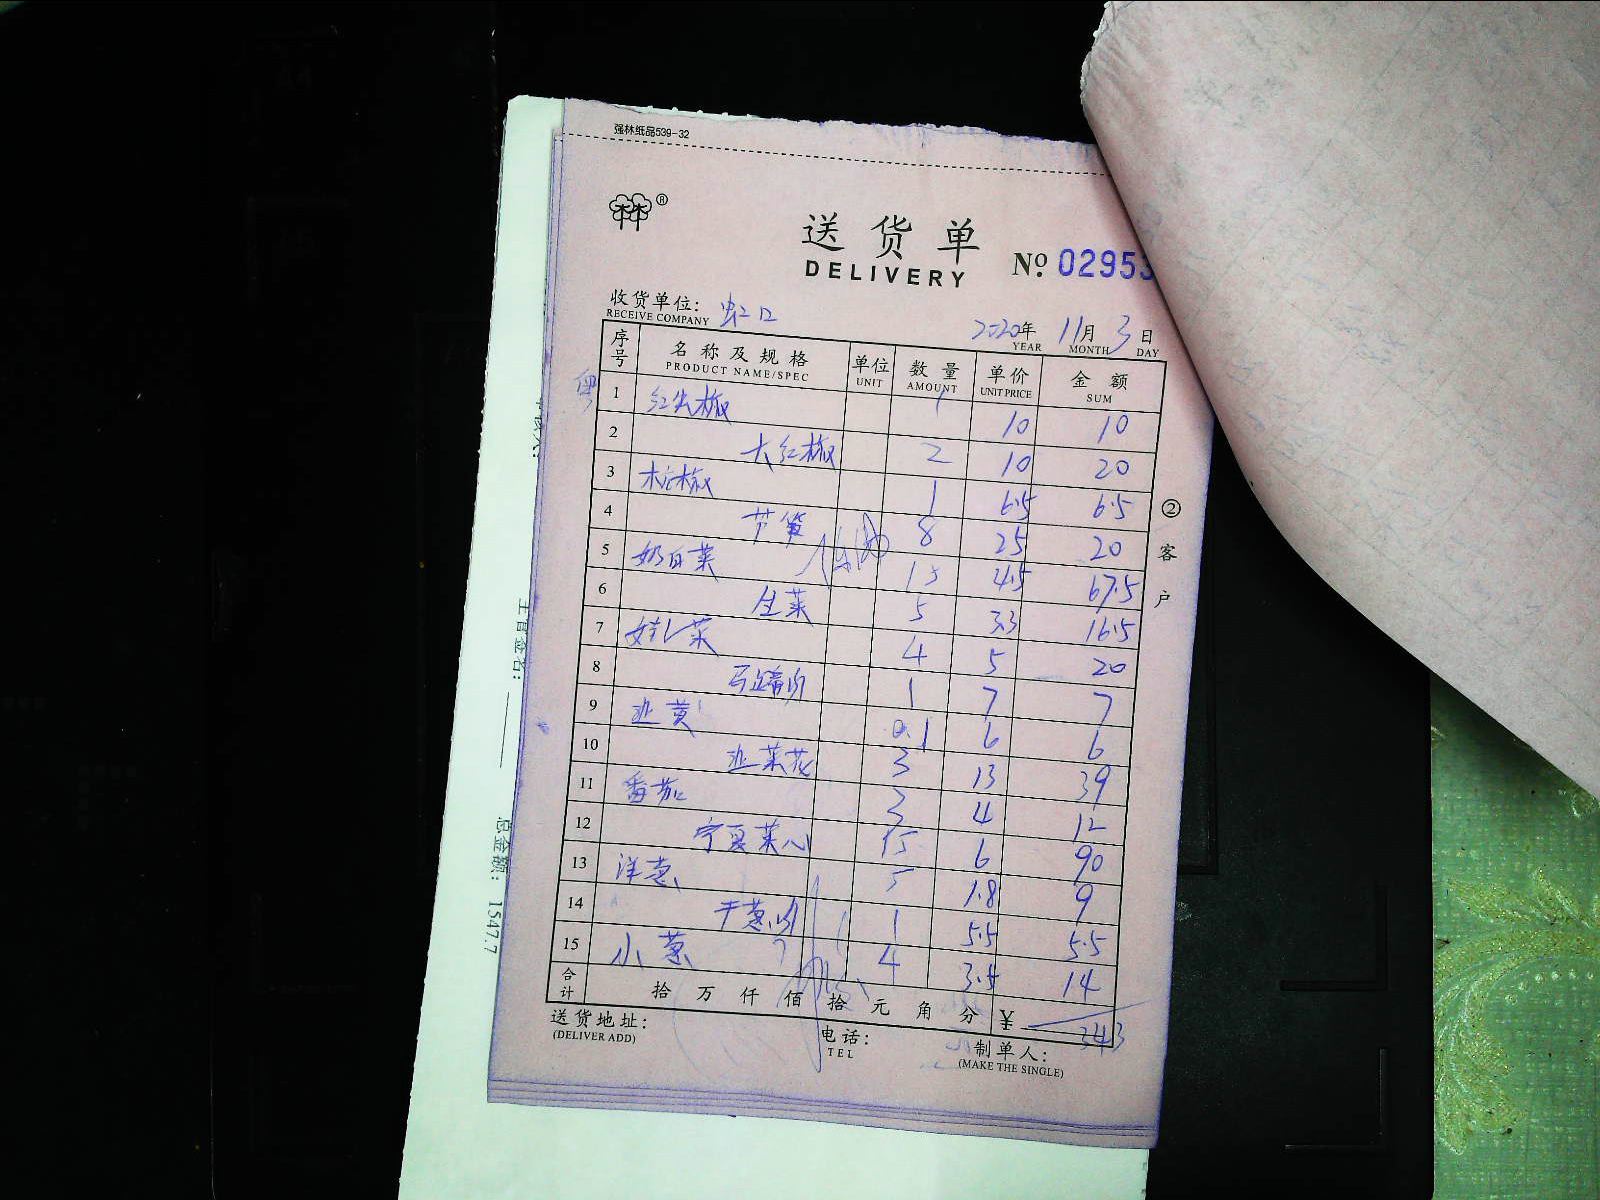 强林纸品539-32
林林®
送货单
DELIVERY
№ 02953
收货单位： 虹口
RECEIVE COMPANY
2020年 11月 3日
YEAR MONTH DAY
序号 名称及规格 单位 数量 单价 金额
PRODUCT NAME/SPEC UNIT AMOUNT UNIT PRICE SUM
粤
1 红尖椒 1 10 10
2 大红椒 2 10 20
3 杭椒 1 6.5 6.5
4 芦笋 8 25 20
5 奶白菜 15 4.5 67.5
6 生菜 5 3.3 16.5
7 娃娃菜 4 5 20
8 马蹄肉 1 7 7
9 韭黄 0.1 6 6
10 韭菜花 3 13 39
11 番茄 3 4 12
12 宁夏菜心 15 6 90
13 洋葱 5 1.8 9
14 1 5.5 5.5
15 小葱 4 3.5 14
合计 拾 万 仟 佰 拾 元 角 分 ¥ 343
送货地址：
(DELIVER ADD)
电话：
TEL
制单人：
(MAKE THE SINGLE)
②客户
主管签名：
总金额：1547.7